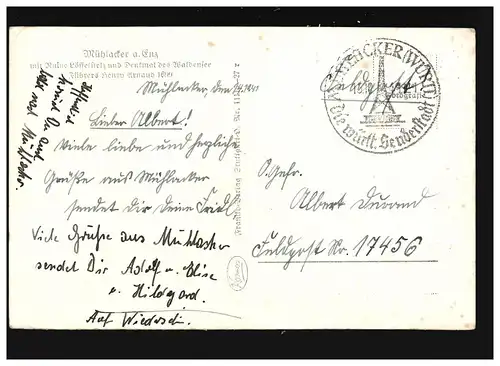 Mühlacker a. Enz
mit Ruine Löffelstelz und Denkmal des Waldenser
Führers Henry Arnaud
Mühlacker, den
Lieber Albert!
Viele liebe und herzliche
Grüße aus Mühlacker
sendet Dir Deine Friedl
Viele Grüße aus Mühlacker
sendet Dir Adolf u. Elise
u. Hildgard.
Auf Wiederseh
Hoffentlich
kommst Du auch
nach Mühlacker.
MÜHLACKER (WÜRTT)
Die württ. Senderstadt
Feldpost
An Gefr.
Albert Durand
Feldpost Nr. 17456